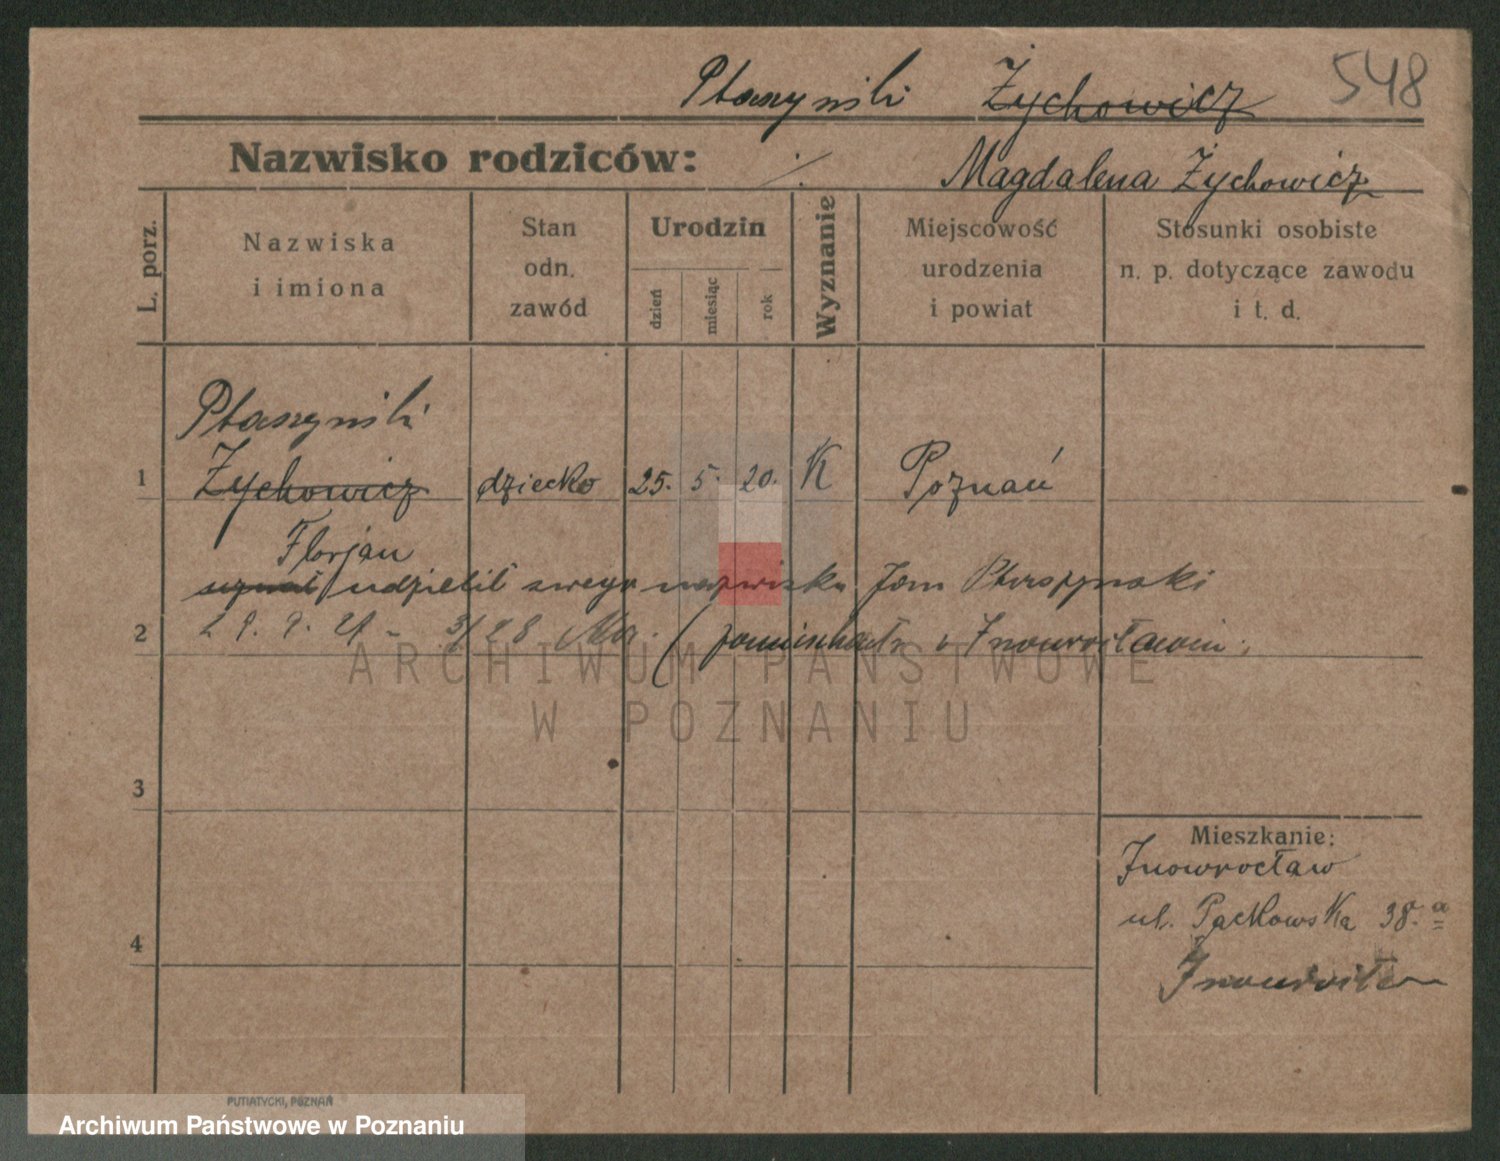 Ptaszyński Żychowicz 548
Nazwisko rodziców: ./. Magdalena Żychowicz
L. porz.
Nazwiska
i imiona
Stan
odn.
zawód
Urodzin
dzień
miesiąc
rok
Wyznanie
Miejscowość
urodzenia
i powiat
Stosunki osobiste
n. p. dotyczące zawodu
i t. d.
Ptaszyński
1 Żychowicz dziecko 25. 5. 20. K Poznań
Florjan
uznał udzielił swego nazwiska Jan Ptaszyński
2 29. 9. 21 - 3/28 (zamieszkały w Inowrocławiu
3
4
Mieszkanie:
Inowrocław
ul. Packowska 38. a
Inowrocław
PUTIATYCKI, POZNAŃ
ARCHIWUM PAŃSTWOWE
W POZNANIU
Archiwum Państwowe w Poznaniu